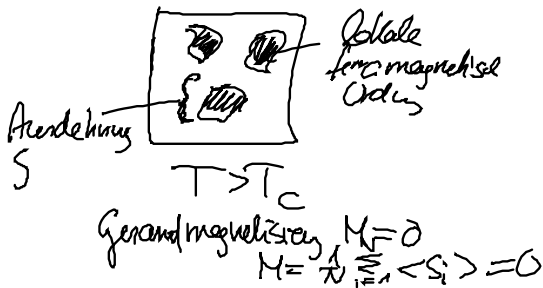 lokale
ferromagnetische
Ordnung
Ausdehnung
ξ
T > T_C
Gesamtmagnetisierung M = 0
M = 1/N Σ_{i=1}^{N} <S_i> = 0